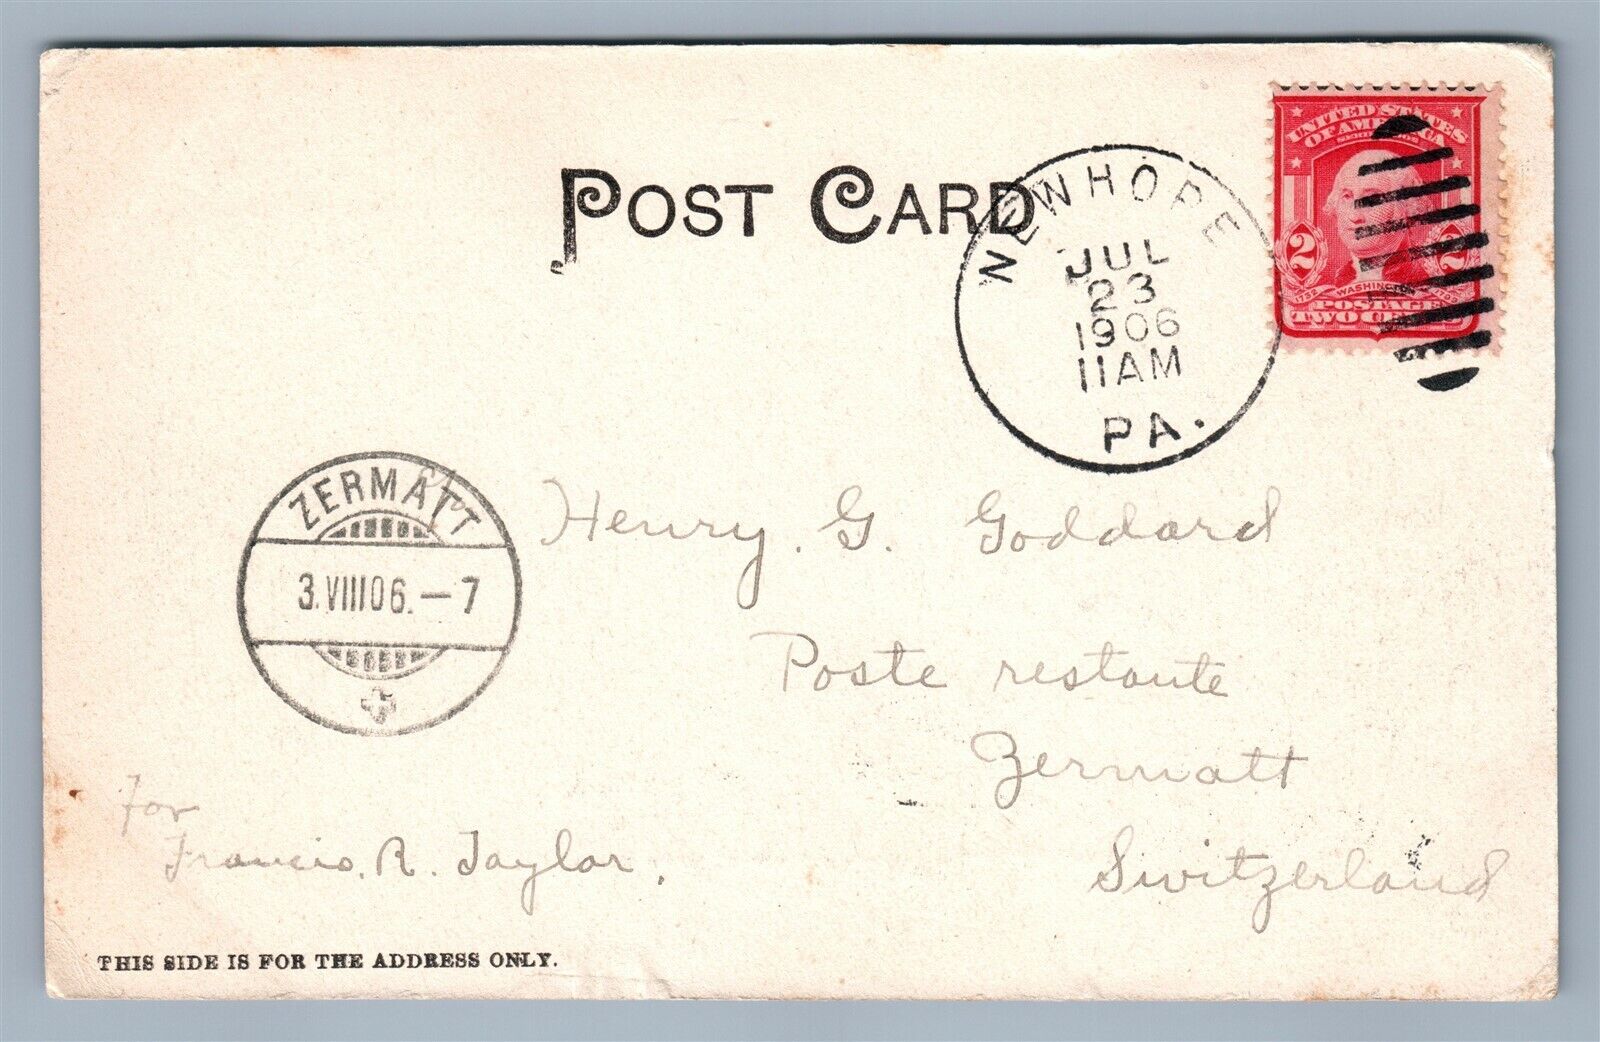 POST CARD
NEWHOPE
JUL
23
1906
11AM
PA.
UNITED STATES
OF AMERICA
2 2
1732 WASHINGTON 1799
POSTAGE
TWO
ZERMATT
3.VIII06.–7
Henry. G. Goddard
Poste restante
Zermatt
Switzerland
for
Francis. R. Taylor.
THIS SIDE IS FOR THE ADDRESS ONLY.